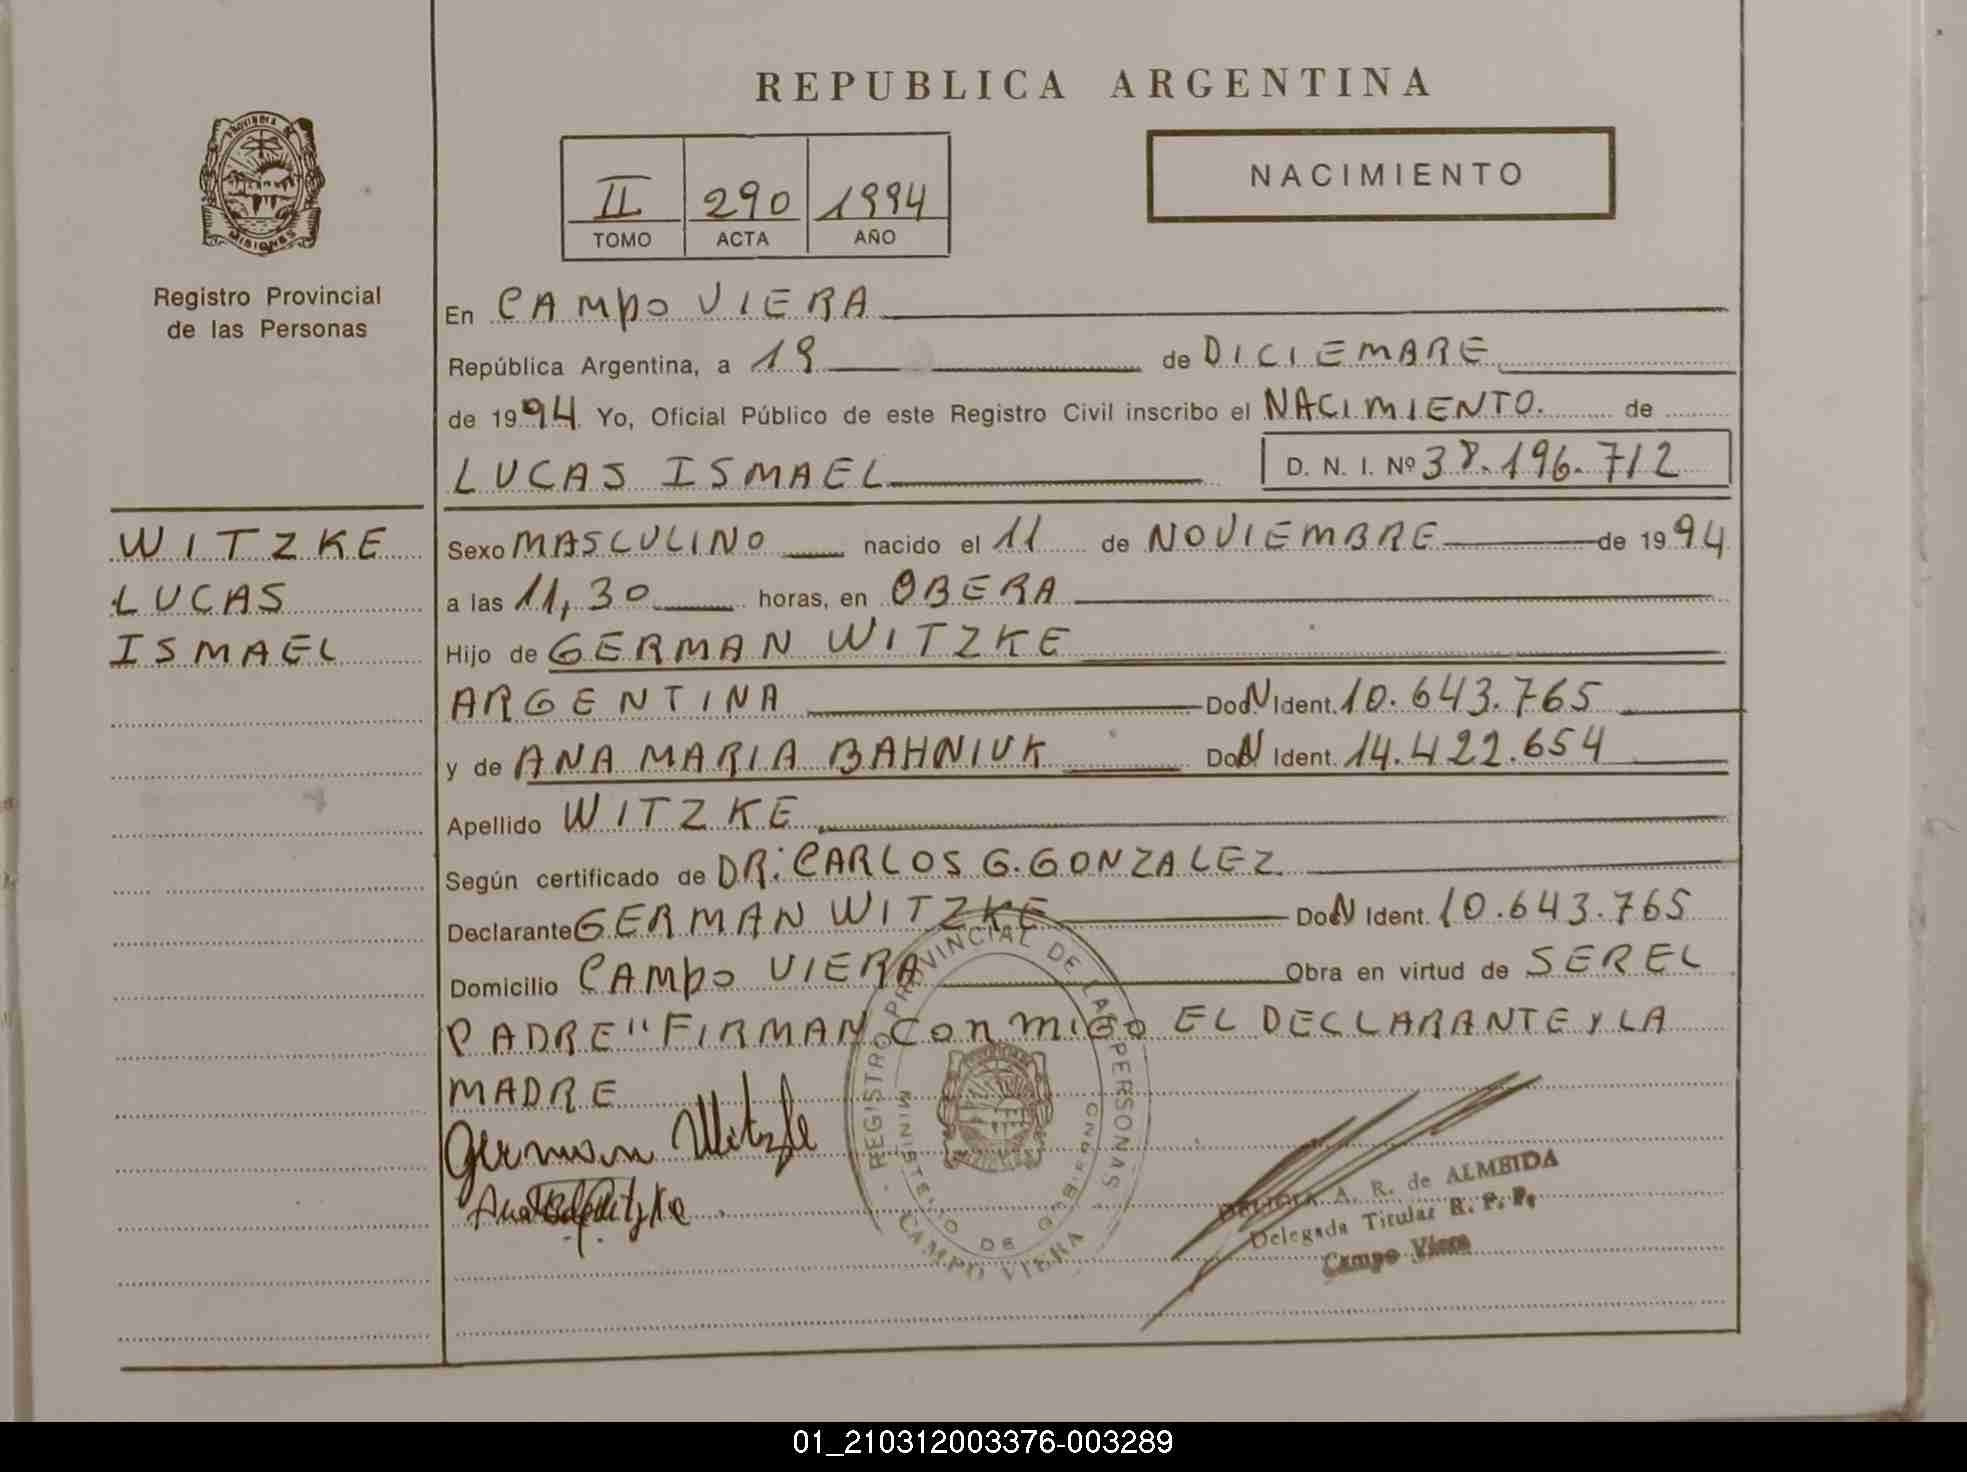 REPUBLICA ARGENTINA
PROVINCIA DE
MISIONES
II 290 1994
TOMO ACTA AÑO
NACIMIENTO
Registro Provincial
de las Personas
En CAMPO VIERA
República Argentina, a 19 de DICIEMBRE
de 1994 Yo, Oficial Público de este Registro Civil inscribo el NACIMIENTO. de
LUCAS ISMAEL D. N. I. Nº 38.196.712
WITZKE
LUCAS
ISMAEL
Sexo MASCULINO nacido el 11 de NOVIEMBRE de 1994
a las 11,30 horas, en OBERA
Hijo de GERMAN WITZKE
ARGENTINA Doc. N Ident. 10.643.765
y de ANA MARIA BAHNIUK Doc. N Ident. 14.422.654
Apellido WITZKE
Según certificado de DR: CARLOS G. GONZALEZ
Declarante GERMAN WITZKE Doc. N Ident. 10.643.765
Domicilio CAMPO VIERA Obra en virtud de SER EL
PADRE" FIRMAN CONMIGO EL DECLARANTE Y LA
MADRE
German Witzke
REGISTRO PROVINCIAL DE LAS PERSONAS
MINISTERIO DE GOBIERNO
CAMPO VIERA
A. R. de ALMEIDA
Delegada Titular R. P. P.
Campo Viera
01_210312003376-003289